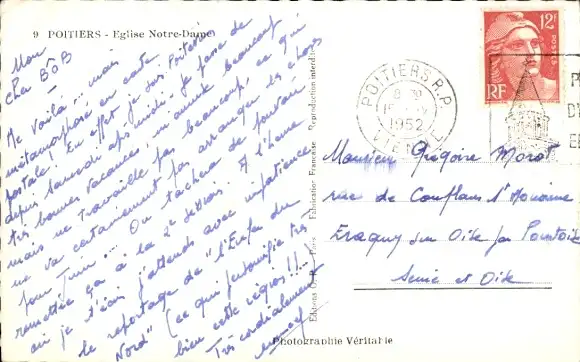 9 POITIERS - Eglise Notre-Dame
Mon
cher BôB
Me voilà... mais
métamorphosé en carte
postale ! En effet je suis Poitevin
depuis lundi après-midi. Je passe de
très bonnes vacances, m'amuse beaucoup
mais ne travaille pas beaucoup, ce qui
ne va certainement pas arranger les choses
pour Juin... On tâchera de pouvoir
remettre ça à la 2e session. A l'heure
où je t'écris j'attends avec impatience
le reportage de "l'Enfer du
Nord" (ce qui personnifie très
bien cette région !!...)
Très cordialement
Reproduction interdite
Fabrication Française
Editions
Paris
Photographie Véritable
12F
POSTES
RF
POITIERS R.P.
1952
VIENNE
Monsieur Grégoire Morot
rue de Conflans St Honorine
Eragny sur Oise par Pontoise
Seine et Oise